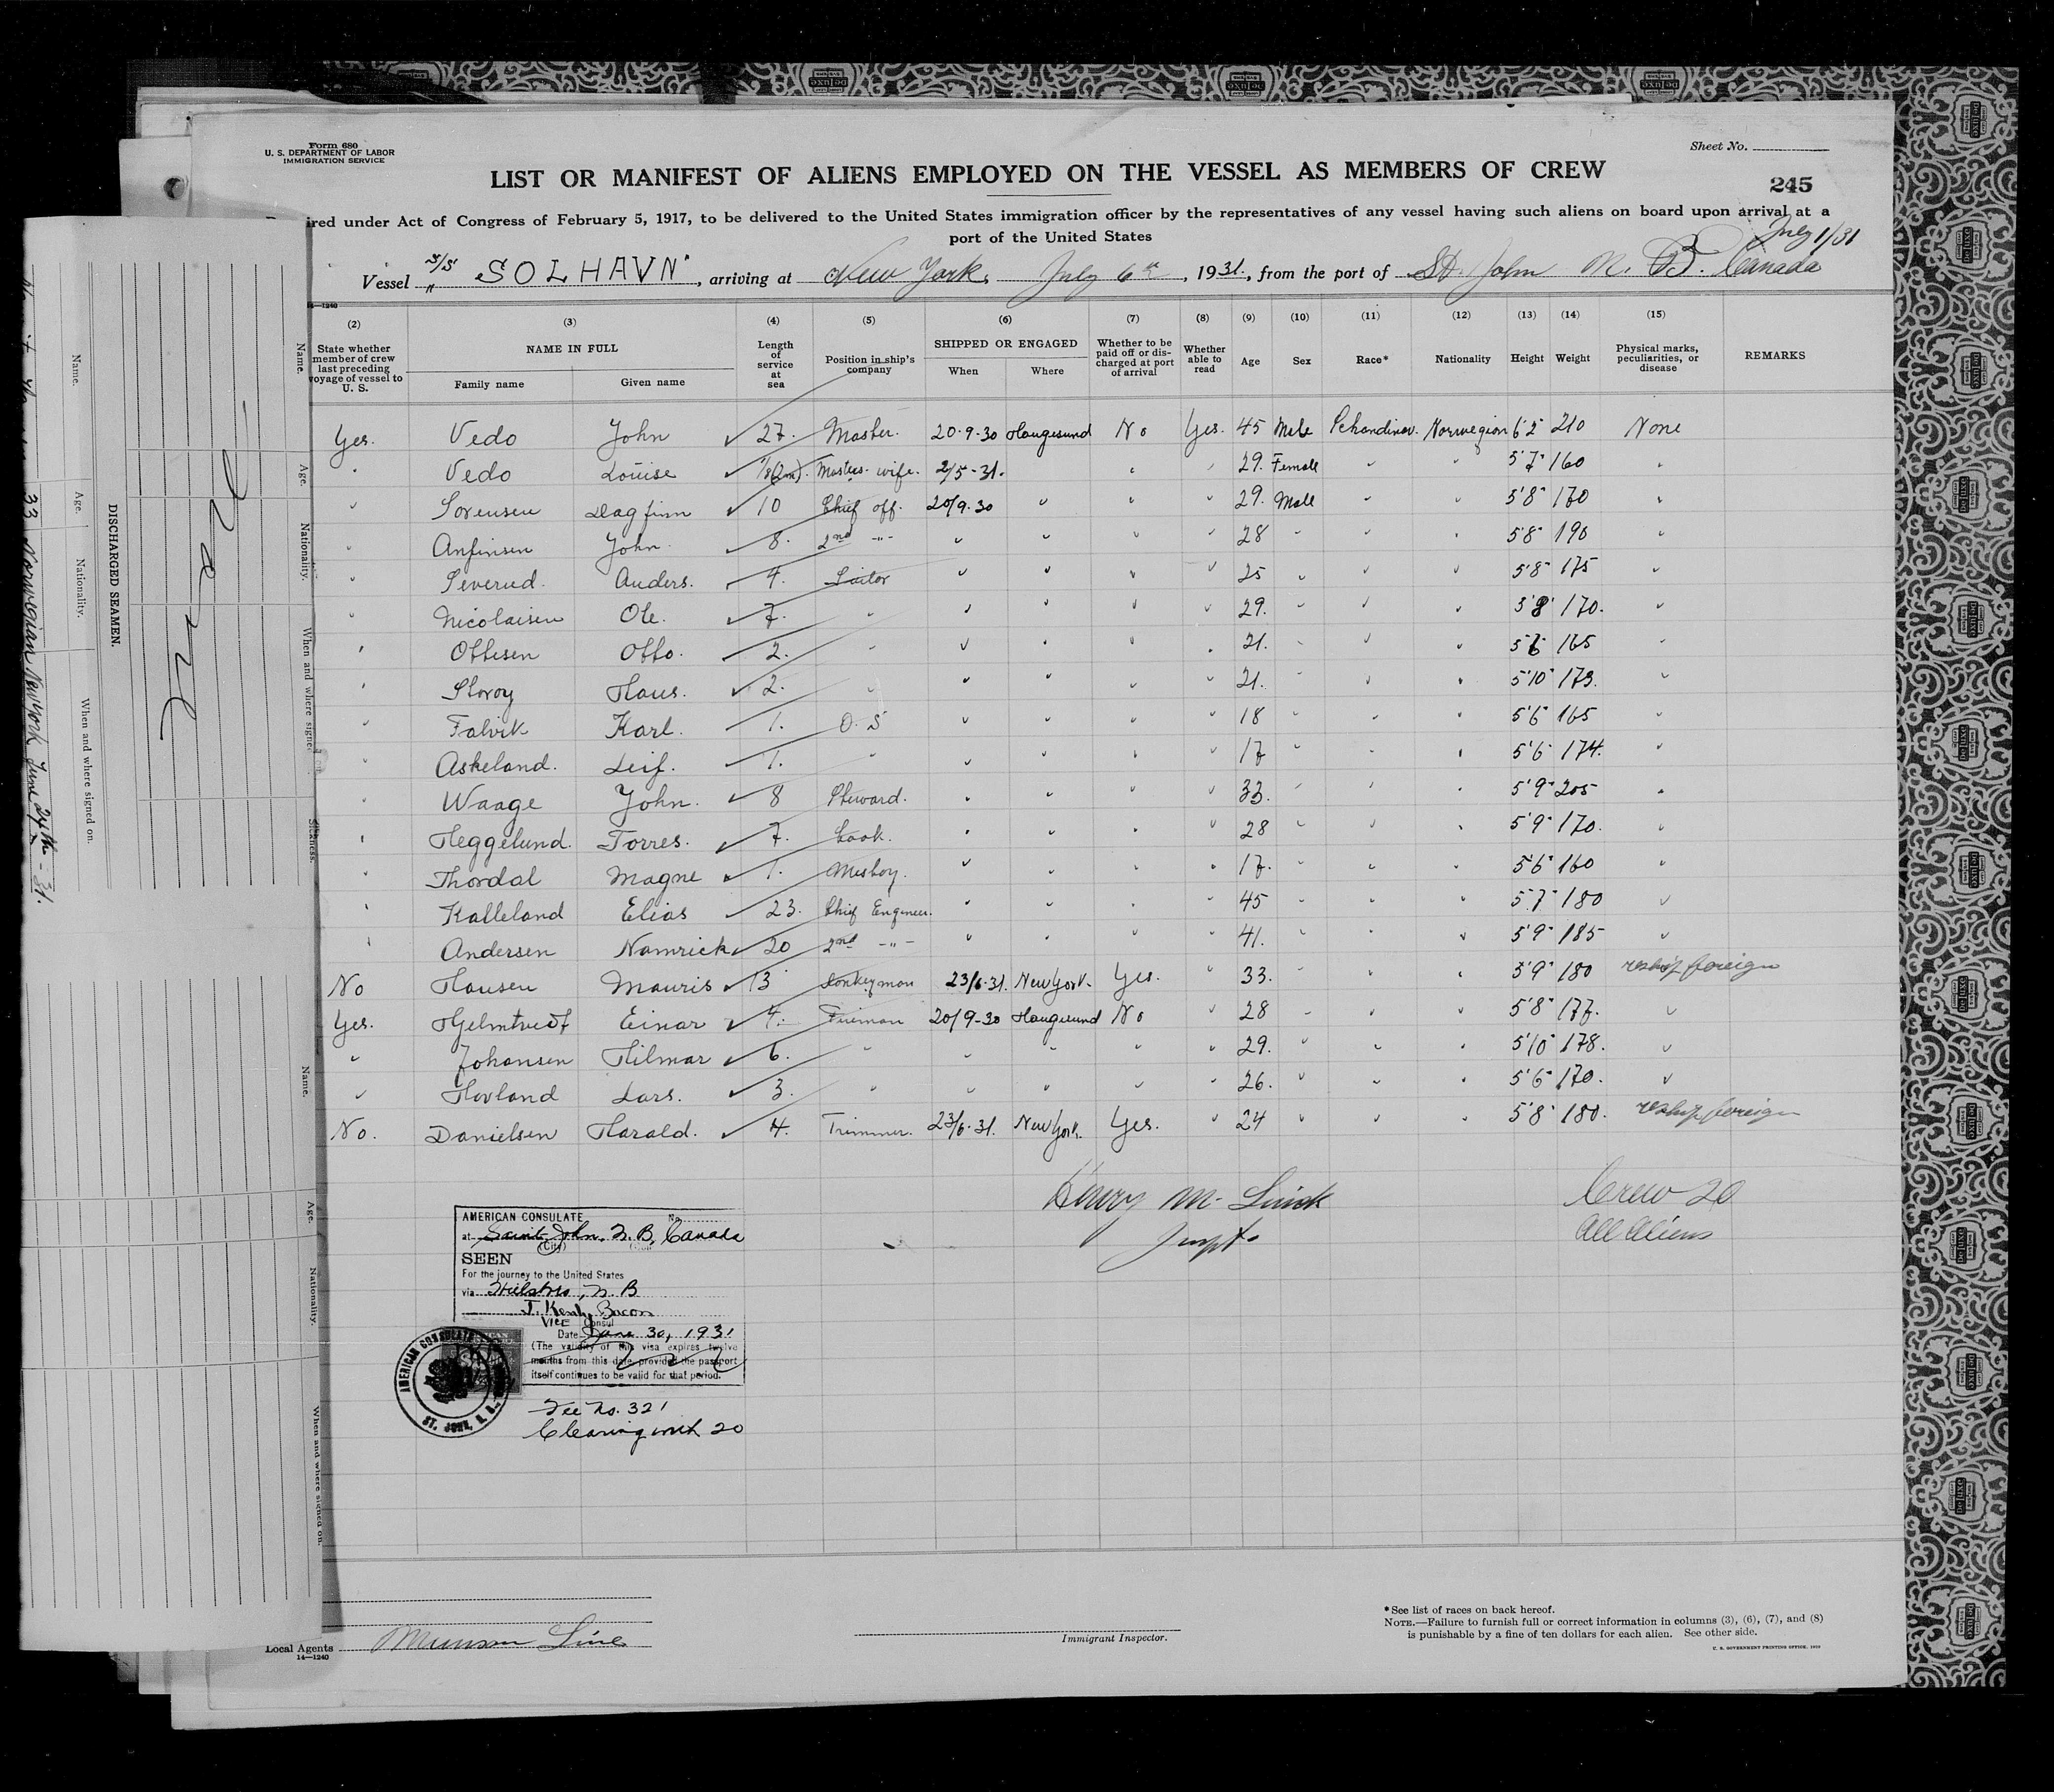 Form 680
U. S. DEPARTMENT OF LABOR
IMMIGRATION SERVICE
Sheet No.
LIST OR MANIFEST OF ALIENS EMPLOYED ON THE VESSEL AS MEMBERS OF CREW
245
ired under Act of Congress of February 5, 1917, to be delivered to the United States immigration officer by the representatives of any vessel having such aliens on board upon arrival at a
port of the United States
July 1/31
Vessel S/S "SOLHAVN", arriving at New York, July 6th, 1931, from the port of St. John N. B. Canada
14—1240
(2) (3) (4) (5) (6) (7) (8) (9) (10) (11) (12) (13) (14) (15)
State whether member of crew last preceding voyage of vessel to U. S.
NAME IN FULL
Family name Given name
Length of service at sea
Position in ship's company
SHIPPED OR ENGAGED
When Where
Whether to be paid off or discharged at port of arrival
Whether able to read
Age Sex Race* Nationality Height Weight
Physical marks, peculiarities, or disease
REMARKS
Yes. Vedo John 27. Master. 20-9-30 Haugesund No Yes. 45 Male Skandinav. Norwegian 6'2" 210 None
" Vedo Louise Masters wife. 2/5-31. " " 29. Female " " 5'7" 160 "
" Sorensen Dagfinn 10 Chief off. 20/9-30 " " " 29. Male " " 5'8" 170 "
" Anfinsen John 8. 2nd -"- " " " " 28 " " " 5'8" 190 "
" Severud. Anders. 4. Sailor " " " " 25 " " " 5'8" 175 "
" Nicolaisen Ole. 7. " " " " " 29. " " " 5'8" 170. "
" Ottesen Otto. 2. " " " " " 21. " " 5'6" 165 "
" Storoy Haus. 2. " " " " " 21. " " " 5'10" 173. "
" Falvik Karl. 1. O. S " " " " 18 " " " 5'6" 165 "
" Askeland. Leif. 1. " " " " " 17 " " " 5'6" 174. "
" Waage John. 8 Steward. " " " " 33. " " " 5'9" 205 "
" Heggelund. Torres. 7. Cook. " " " " 28 " " " 5'9" 170. "
" Thordal Magne 1. Mesboy. " " " " 17. " " " 5'6" 160 "
" Kalleland Elias 23. Chief Engineer. " " " " 45 " " " 5'7" 180 "
" Andersen Namrick 20 2nd -"- " " " " 41. " " " 5'9" 185 "
No Hansen Mauris 13 Donkeyman 23/6-31. New York. Yes. " 33. " " " 5'9" 180 reship foreign
Yes. Hjelmtvedt Einar 4. Fireman 20/9-30 Haugesund No " 28 " " " 5'8" 177. "
" Johansen Hilmar 6. " " " " " 29. " " " 5'10" 178. "
" Hovland Lars. 3. " " " " " 26. " " " 5'6" 170. "
No. Danielsen Harald. 4. Trimmer. 23/6-31. New York. Yes. " 24 " " " 5'8" 180. reship foreign
Henry M. Linick
Inspt.
Crew 20
All Aliens
AMERICAN CONSULATE No.
at Saint John, N. B, Canada
(City)
SEEN
For the journey to the United States
via Hillsboro, N. B
Bacon
VICE Consul
Date June 30, 1931
(The validity of this visa expires twelve
months from this date provided the passport
itself continues to be valid for that period.
AMERICAN CONSULATE
ST. JOHN, N. B.
Fee No. 321
Clearing with 20
Local Agents Munson Line
14—1240
Immigrant Inspector.
* See list of races on back hereof.
NOTE.—Failure to furnish full or correct information in columns (3), (6), (7), and (8)
is punishable by a fine of ten dollars for each alien. See other side.
U. S. GOVERNMENT PRINTING OFFICE: 1929
DISCHARGED SEAMEN.
Name. Age. Nationality. When and where signed on.
33 Norwegian New York June 24th - 31.
Name. Age. Nationality. When and where signed on. Sickness.
Name. Age. Nationality. When and where signed on.